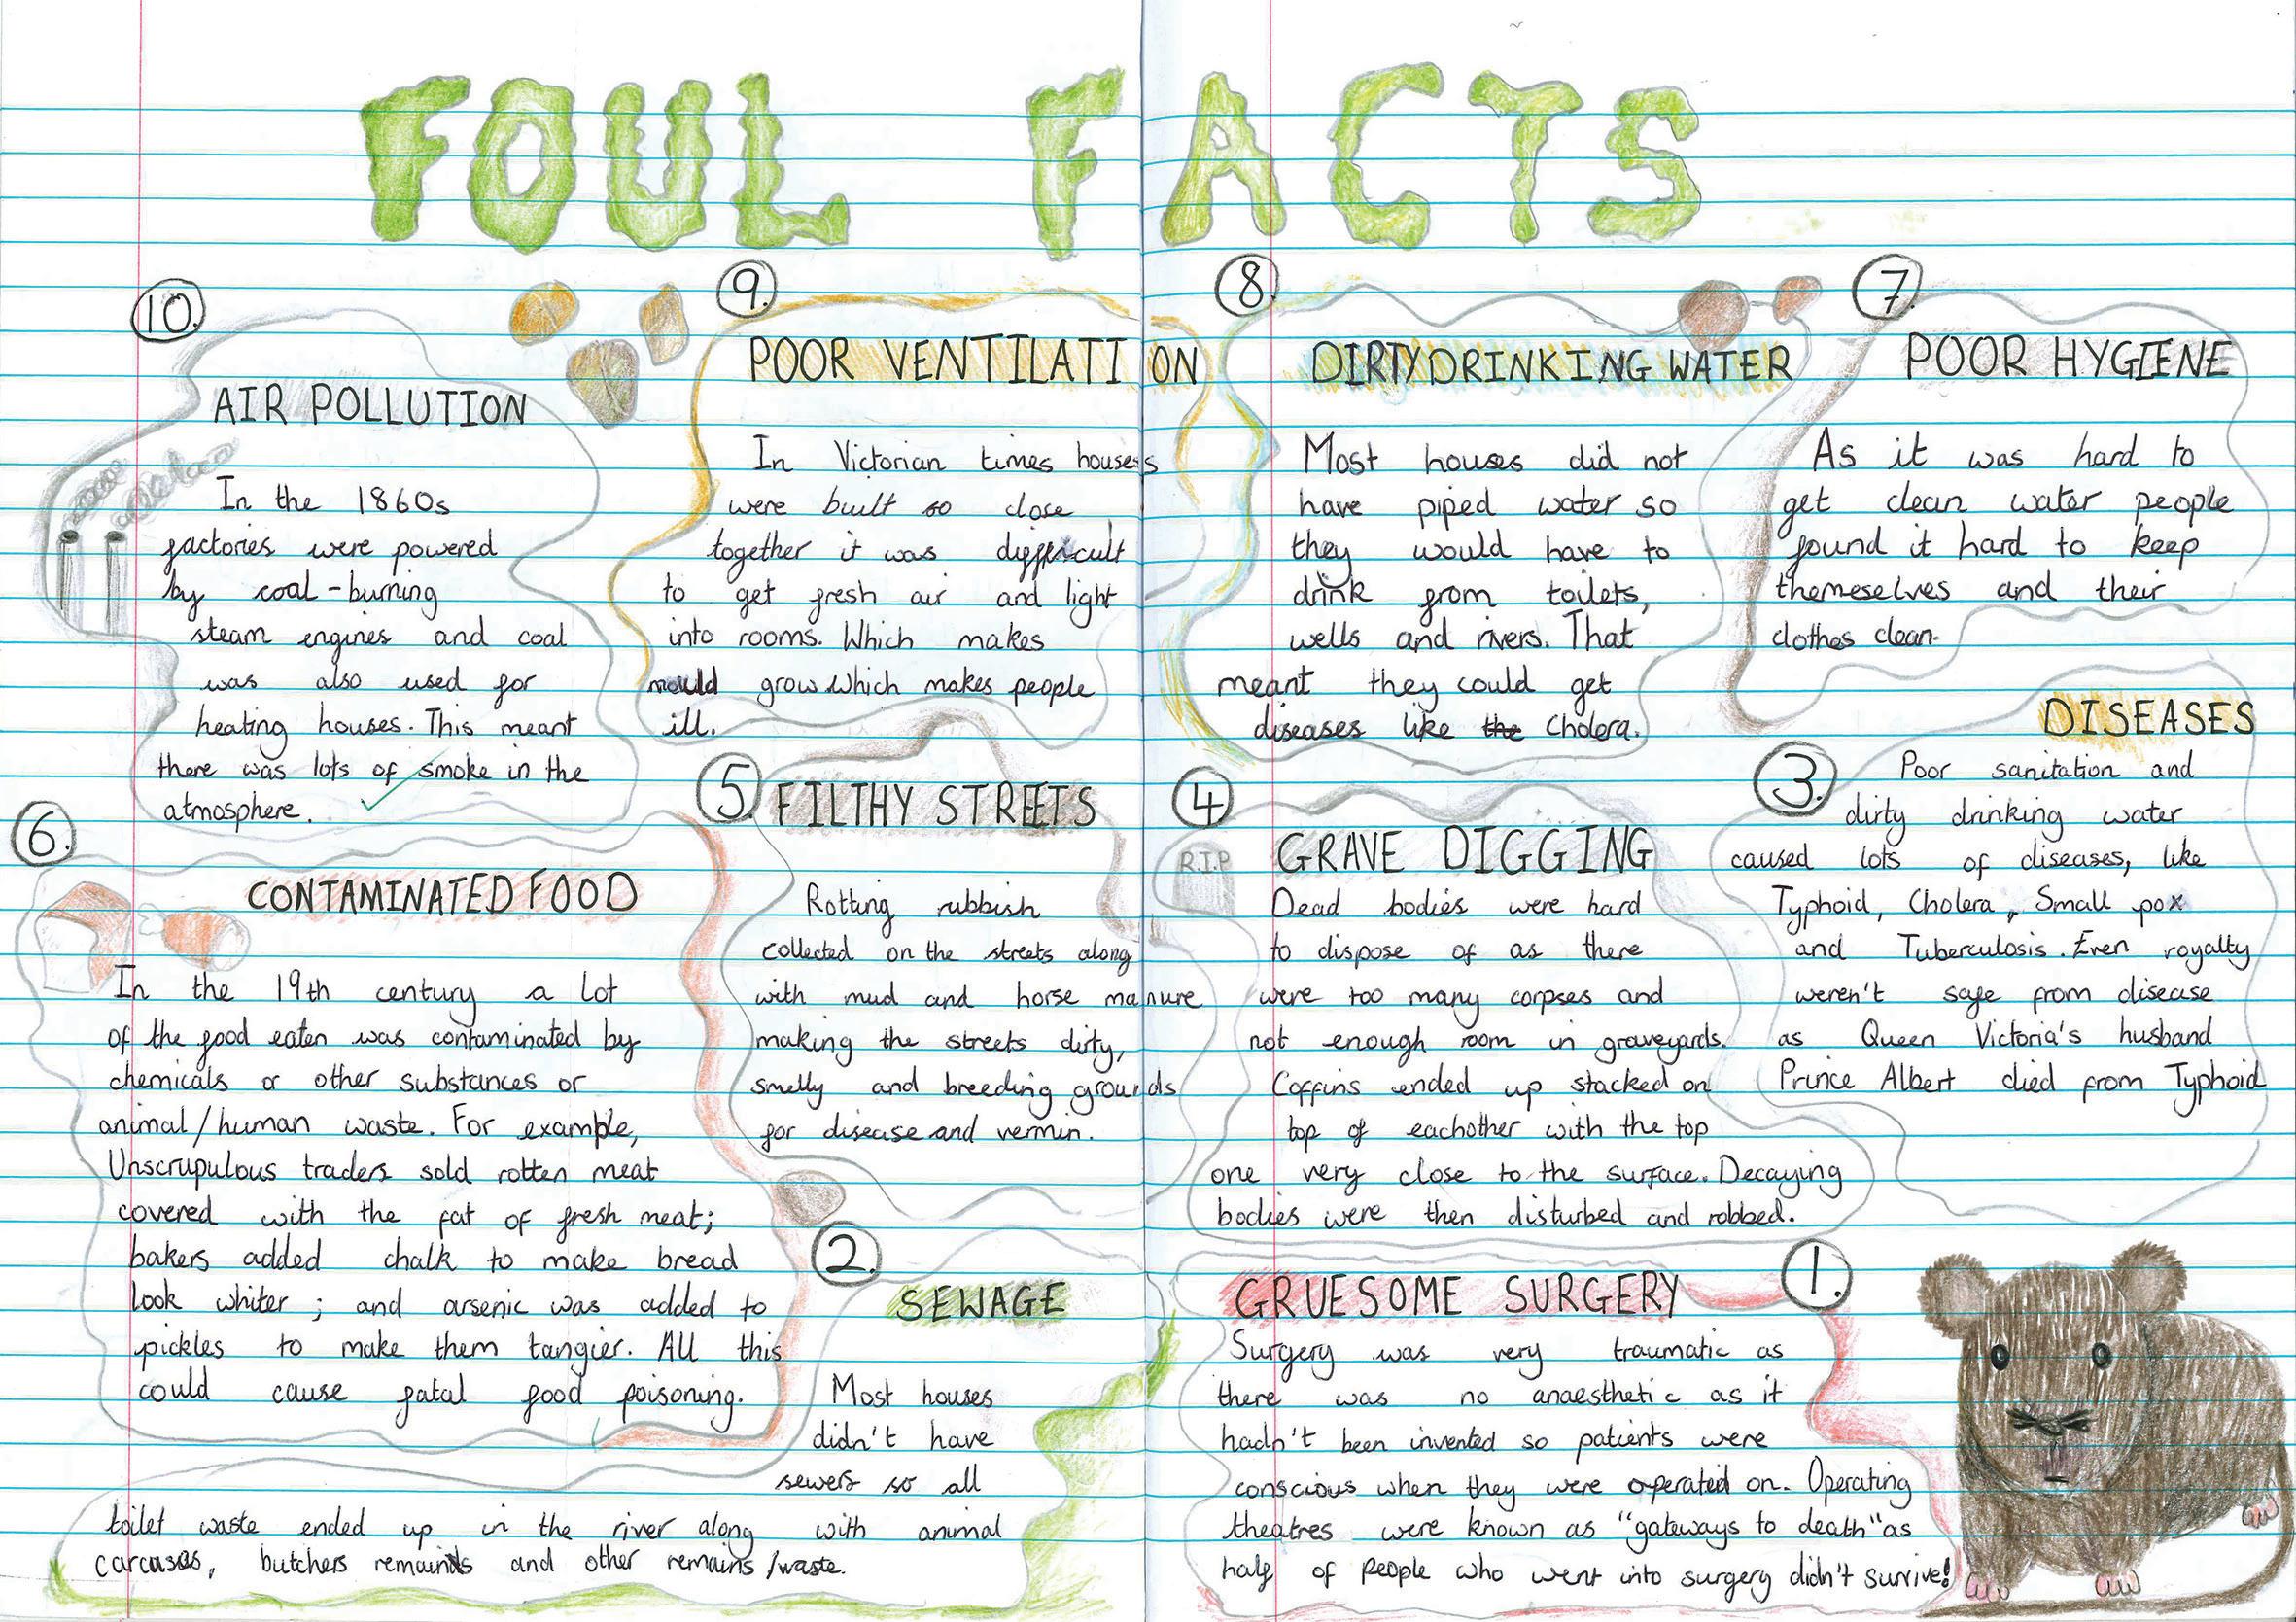 FOUL FACTS
10.
AIR POLLUTION
In the 1860s
factories were powered
by coal-burning
steam engines and coal
was also used for
heating houses. This meant
there was lots of smoke in the
atmosphere.
9.
POOR VENTILATION
In Victorian times houses
were built so close
together it was difficult
to get fresh air and light
into rooms. Which makes
mould grow which makes people
ill.
8.
DIRTY DRINKING WATER
Most houses did not
have piped water so
they would have to
drink from toilets,
wells and rivers. That
meant they could get
diseases like the Cholera.
7.
POOR HYGIENE
As it was hard to
get clean water people
found it hard to keep
themeselves and their
clothes clean.
6.
CONTAMINATED FOOD
In the 19th century a lot
of the food eaten was contaminated by
chemicals or other substances or
animal/human waste. For example,
Unscrupulous traders sold rotten meat
covered with the fat of fresh meat;
bakers added chalk to make bread
look whiter; and arsenic was added to
pickles to make them tangier. All this
could cause fatal food poisoning.
5.
FILTHY STREETS
Rotting rubbish
collected on the streets along
with mud and horse manure
making the streets dirty,
smelly and breeding grounds
for disease and vermin.
4
R.I.P
GRAVE DIGGING
Dead bodies were hard
to dispose of as there
were too many corpses and
not enough room in graveyards.
Coffins ended up stacked on
top of eachother with the top
one very close to the surface. Decaying
bodies were then disturbed and robbed.
3.
DISEASES
Poor sanitation and
dirty drinking water
caused lots of diseases, like
Typhoid, Cholera, Small pox
and Tuberculosis. Even royalty
weren't safe from disease
as Queen Victoria's husband
Prince Albert died from Typhoid
2.
SEWAGE
Most houses
didn't have
sewers so all
toilet waste ended up in the river along with animal
carcuses, butchers remains and other remains/waste.
1.
GRUESOME SURGERY
Surgery was very traumatic as
there was no anaesthetic as it
hadn't been invented so patients were
conscious when they were operated on. Operating
theatres were known as "gateways to death" as
half of people who went into surgery didn't survive!